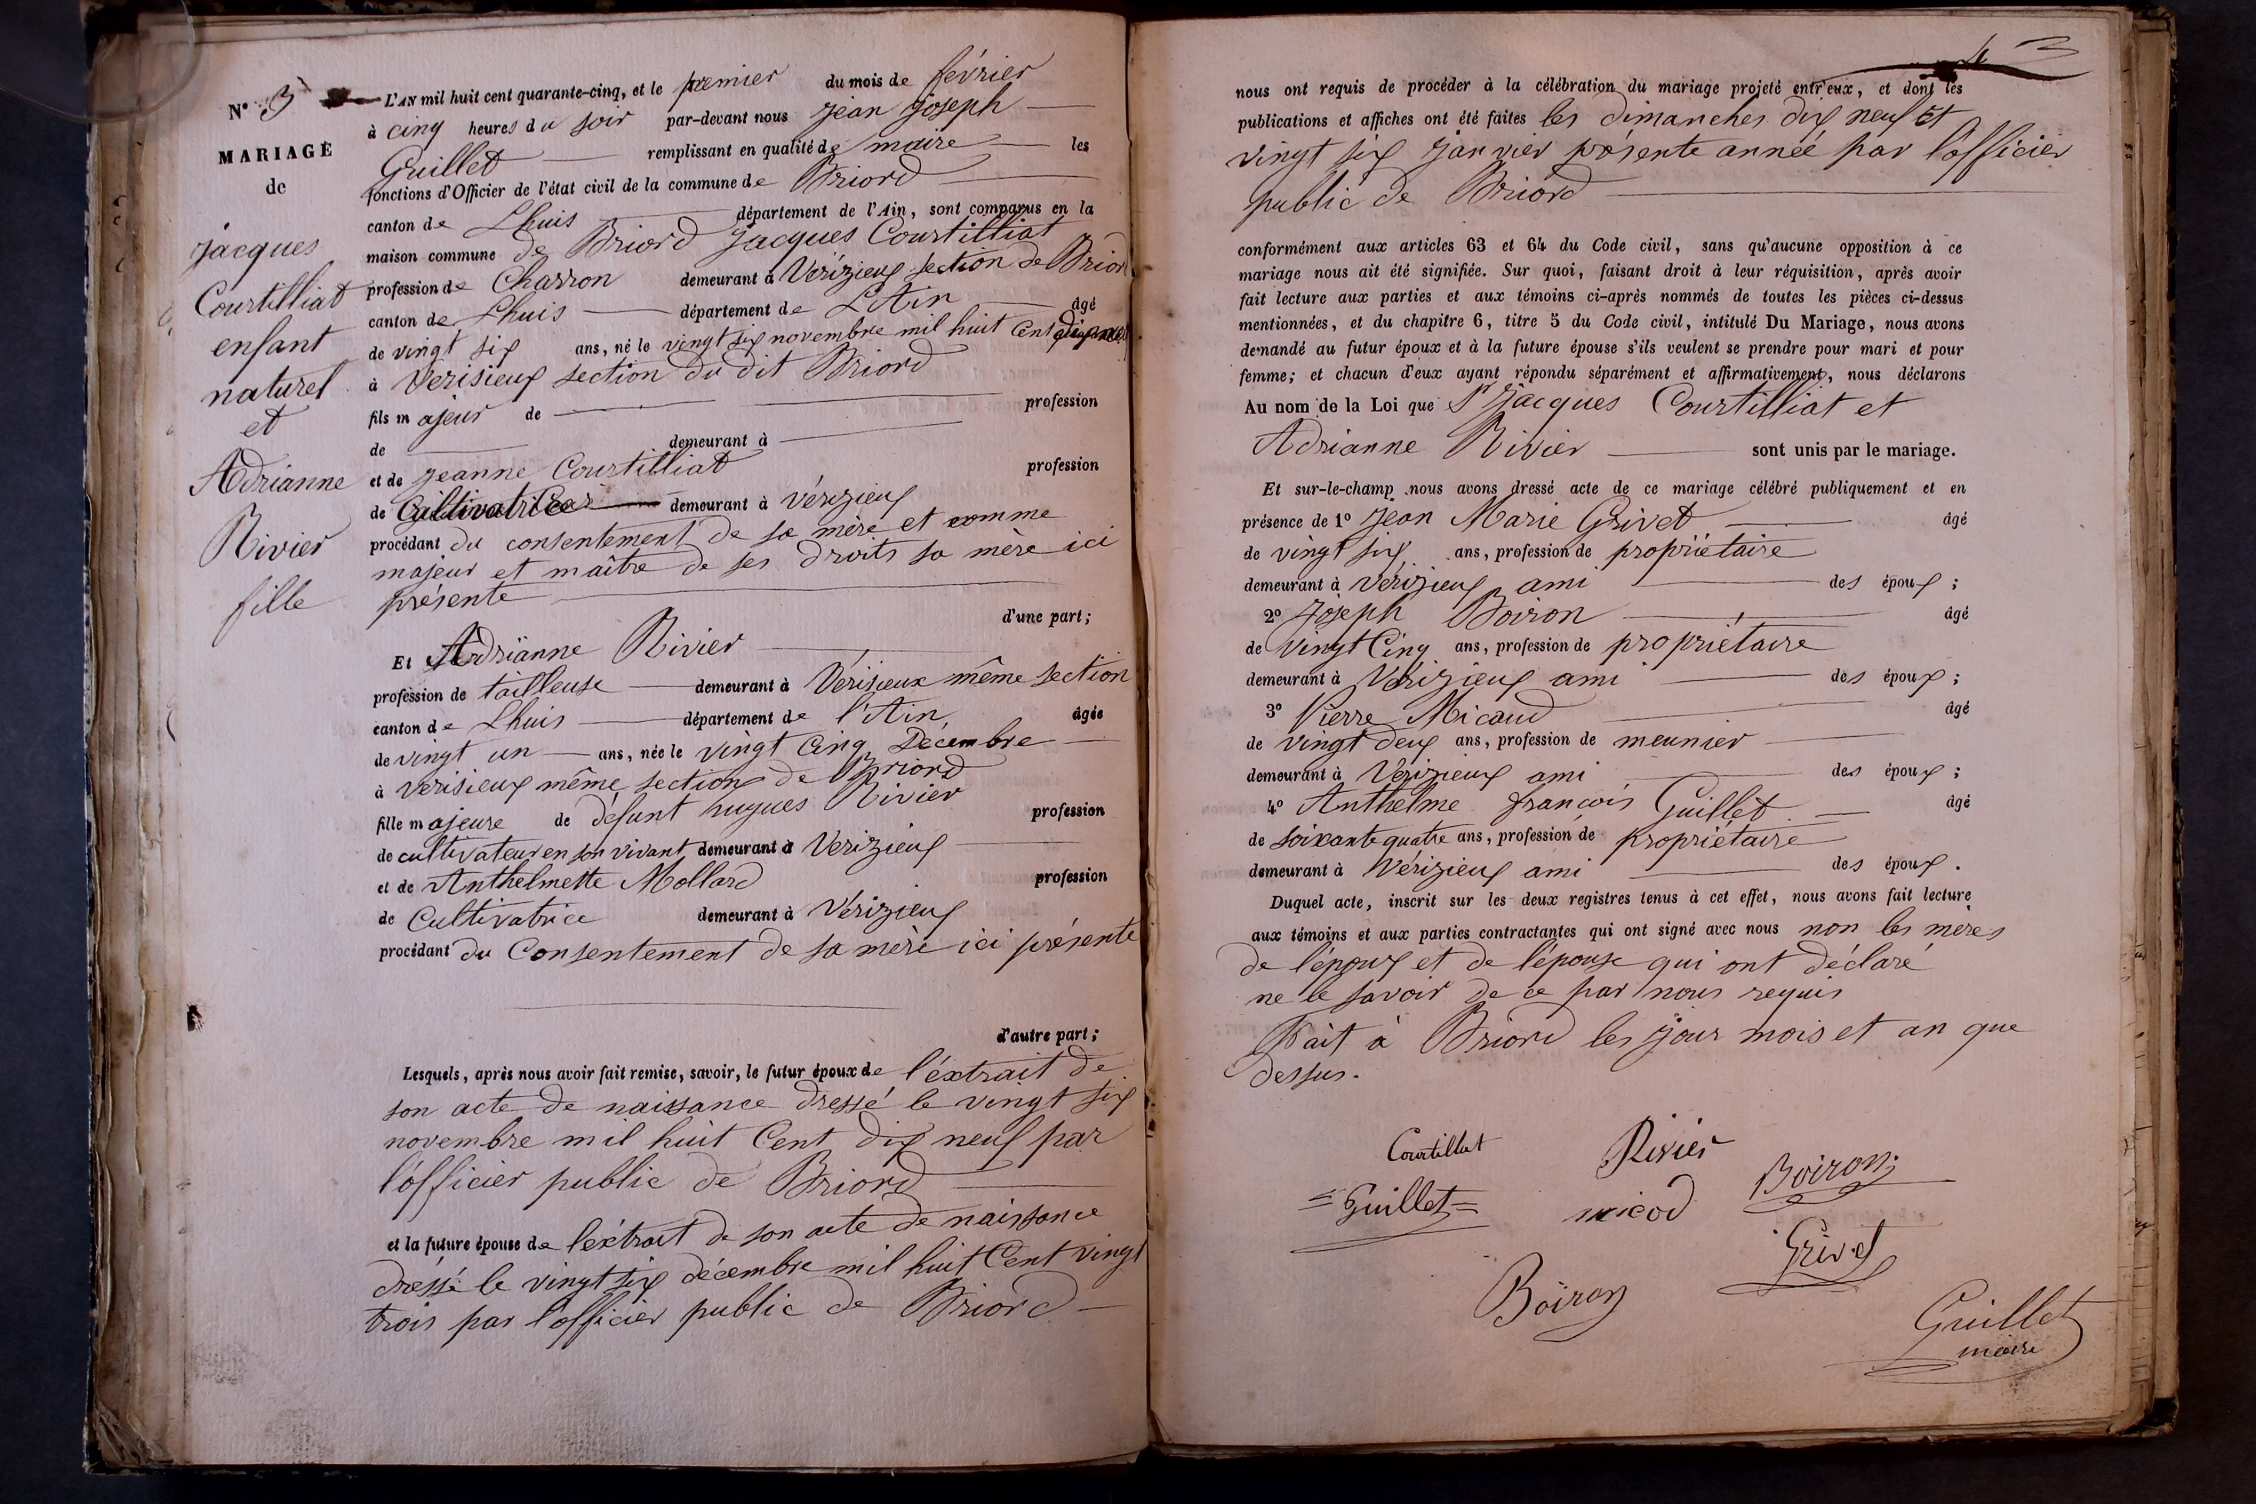 N° 3
MARIAGE
de
Jacques
Courtilliat
enfant
naturel
et
Adrianne
Rivier
fille
L'AN mil huit cent quarante-cinq, et le premier du mois de février
à cinq heures du soir par-devant nous Jean Joseph
Guillet remplissant en qualité de maire les
fonctions d'Officier de l'état civil de la commune de Briord
canton de Lhuis département de l'Ain, sont comparus en la
maison commune de Briord Jacques Courtilliat
profession de Charron demeurant à Vérizieux section de Briord
canton de Lhuis département de L'Ain âgé
de vingt six ans, né le vingt six novembre mil huit Cent dix neuf
à Verisieux section du dit Briord
fils majeur de profession
de demeurant à
et de Jeanne Courtilliat profession
de Cultivatrice demeurant à Vérizieux
procédant du consentement de sa mère et comme
majeur et maître de ses droits sa mère ici
présente
d'une part;
Et Adrianne Rivier
profession de tailleuse demeurant à Vérisieux même section
canton de Lhuis département de l'Ain, âgée
de vingt un ans, née le vingt Cinq Décembre
à Verisieux même section de Briord
fille majeure de défunt hugues Rivier profession
de cultivateur en son vivant demeurant à Verizieux
et de Anthelmette Mollard profession
de Cultivatrice demeurant à Vérizieux
procédant du Consentement de sa mère ici présente
d'autre part;
Lesquels, après nous avoir fait remise, savoir, le futur époux de l'éxtrait de
son acte de naissance dressé le vingt six
novembre mil huit Cent dix neuf par
l'officier public de Briord
et la future épouse de l'éxtrait de son acte de naissance
dressé le vingt six décembre mil huit Cent vingt
trois par l'officier public de Briord
4 3
nous ont requis de procéder à la célébration du mariage projeté entr'eux, et dont les
publications et affiches ont été faites les dimanches dix neuf et
vingt six janvier présente année par l'officier
public de Briord
conformément aux articles 63 et 64 du Code civil, sans qu'aucune opposition à ce
mariage nous ait été signifiée. Sur quoi, faisant droit à leur réquisition, après avoir
fait lecture aux parties et aux témoins ci-après nommés de toutes les pièces ci-dessus
mentionnées, et du chapitre 6, titre 5 du Code civil, intitulé Du Mariage, nous avons
demandé au futur époux et à la future épouse s'ils veulent se prendre pour mari et pour
femme; et chacun d'eux ayant répondu séparément et affirmativement, nous déclarons
Au nom de la Loi que Sr Jacques Courtilliat et
Adrianne Rivier sont unis par le mariage.
Et sur-le-champ nous avons dressé acte de ce mariage célébré publiquement et en
présence de 1° Jean Marie Grivet âgé
de vingt six ans, profession de propriétaire
demeurant à Vérizieux ami des époux;
2° Joseph Boiron âgé
de Vingt Cinq ans, profession de propriétaire
demeurant à Vérizieux ami des époux;
3° Pierre Micaud âgé
de vingt deux ans, profession de meunier
demeurant à Vérizieux ami des époux;
4° Anthelme françois Guillet âgé
de soixante quatre ans, profession de propriétaire
demeurant à Vérizieux ami des époux.
Duquel acte, inscrit sur les deux registres tenus à cet effet, nous avons fait lecture
aux témoins et aux parties contractantes qui ont signé avec nous non les mères
de l'époux et de l'épouse qui ont déclaré
ne le savoir de ce par nous requis
Fait à Briord les jour mois et an que
dessus.
Courtillat Rivier Boiron
Guillet micod
Grivet
Boiron
Guillet
maire